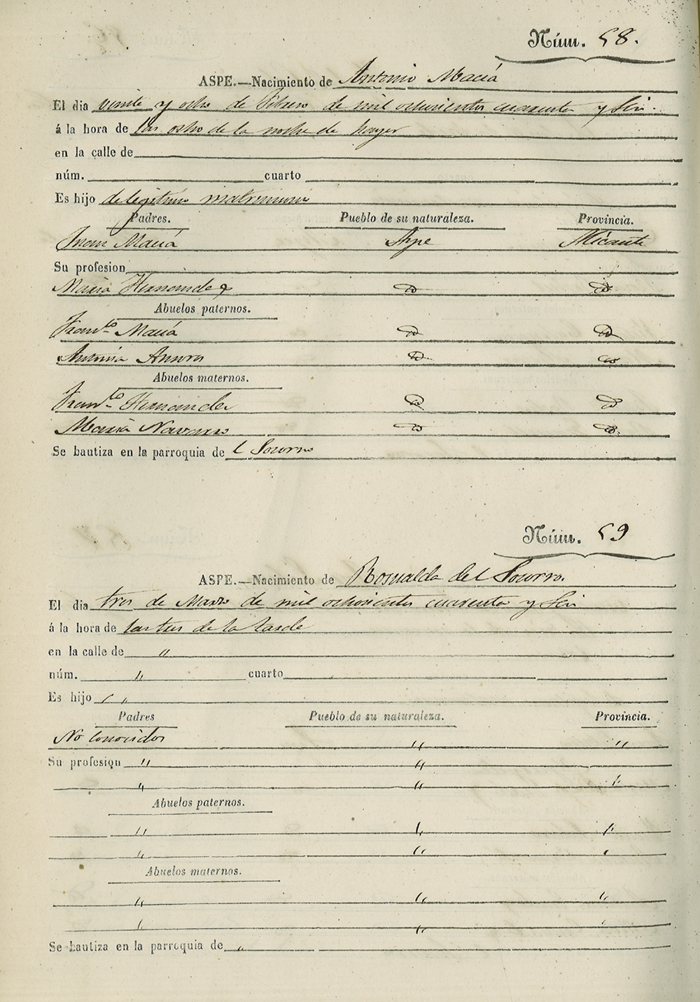 Núm. 58.
ASPE.—Nacimiento de Antonio Maciá
El dia veinte y ocho de Febrero de mil ochosientos cuarenta y Seis.
á la hora de las ocho de la noche de hayer
en la calle de
núm. cuarto
Es hijo de legitimo matrimonio
Padres. Pueblo de su naturaleza. Provincia.
Juan Maciá Aspe Alicante
Su profesion
Maria Hernandez
Abuelos paternos.
Franco. Maciá
Antonia
Abuelos maternos.
Franco. Hernandez
Maria Navarro
Se bautiza en la parroquia de l Socorro
Núm. 59
ASPE.—Nacimiento de Romualda del Socorro.
El dia tres de Marzo de mil ochosientos cuarenta y Seis
á la hora de las tres de la tarde
en la calle de "
núm. " cuarto
Es hijo " "
Padres Pueblo de su naturaleza. Provincia.
No conocidos " "
Su profesion " "
" " "
Abuelos paternos.
" " "
" " "
Abuelos maternos.
" " "
" " "
Se bautiza en la parroquia de "